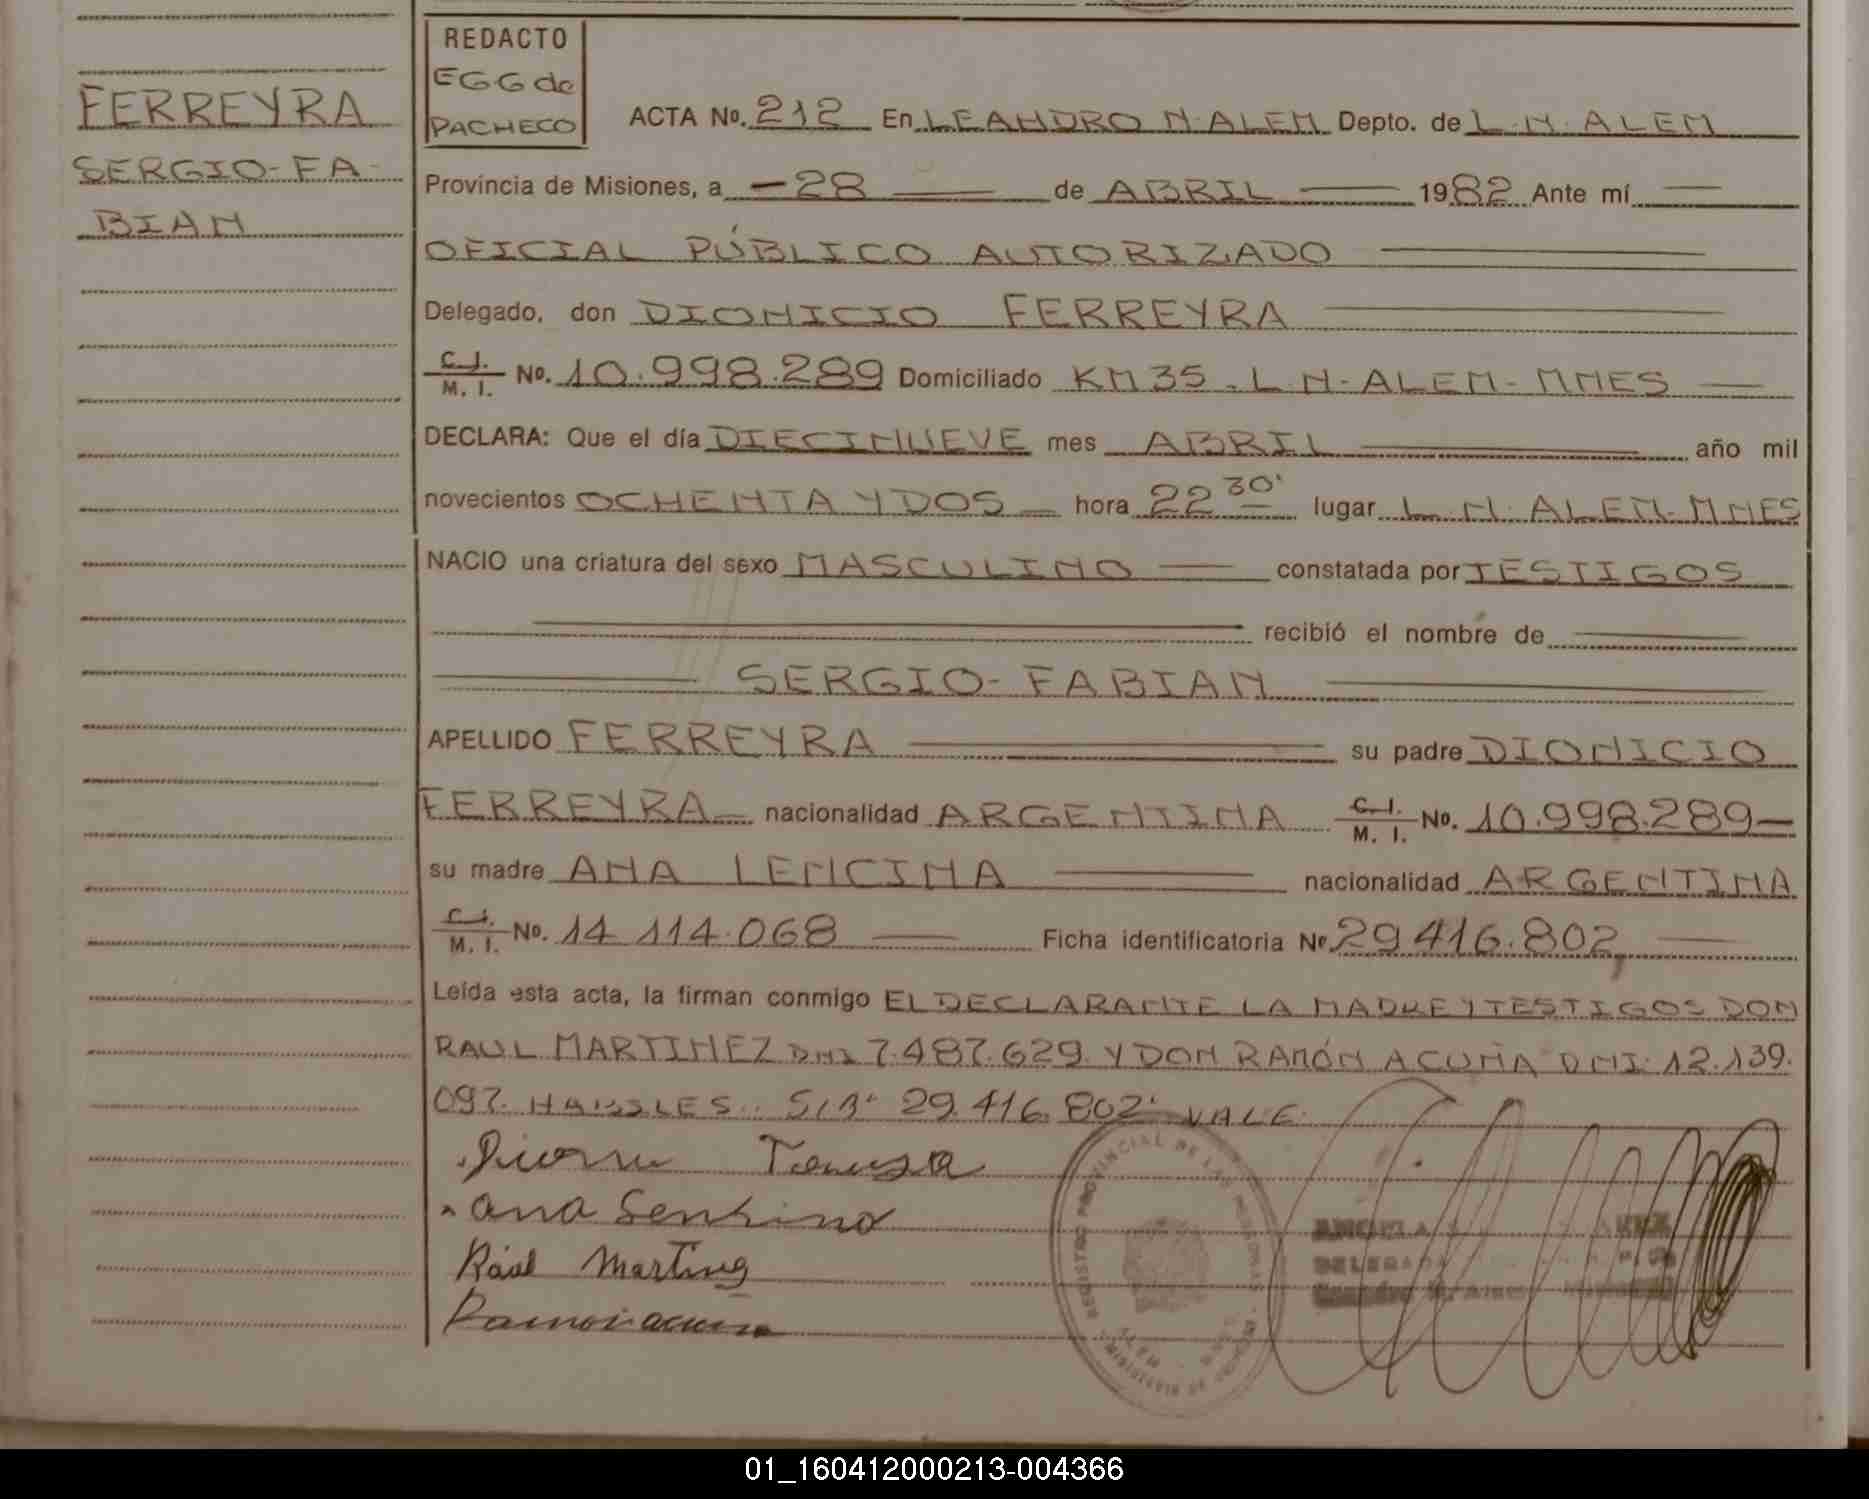 FERREYRA
SERGIO-FA-
BIAN
REDACTO
EGG de
PACHECO
ACTA No. 212 En LEANDRO N. ALEM Depto. de L. N. ALEM
Provincia de Misiones, a 28 de ABRIL 1982 Ante mí
OFICIAL PÚBLICO AUTORIZADO
Delegado, don DIONICIO FERREYRA
C. I. M. I. No. 10.998.289 Domiciliado KM 35. L. N. ALEM - MNES
DECLARA: Que el día DIECINUEVE mes ABRIL año mil
novecientos OCHENTA Y DOS hora 22 30' lugar L. N. ALEM. MNES
NACIO una criatura del sexo MASCULINO constatada por TESTIGOS
recibió el nombre de
SERGIO-FABIAN
APELLIDO FERREYRA su padre DIONICIO
FERREYRA nacionalidad ARGENTINA C. I. M. I. No. 10.998.289
su madre ANA LENCINA nacionalidad ARGENTINA
C. I. M. I. No. 14 114.068 Ficha identificatoria Nº 29 416.802
Leída esta acta, la firman conmigo EL DECLARANTE LA MADRE Y TESTIGOS DON
RAUL MARTINEZ DNI 7.487.629 Y DON RAMÓN ACUÑA DNI: 12.139.
097. HABILES. S/B: 29.416.802: VALE
Ana
Raúl Martinez
Ramon acuña
REGISTRO PROVINCIAL DE LAS PERSONAS
ALEM
MINISTERIO DE
DELEGADA
01_160412000213-004366